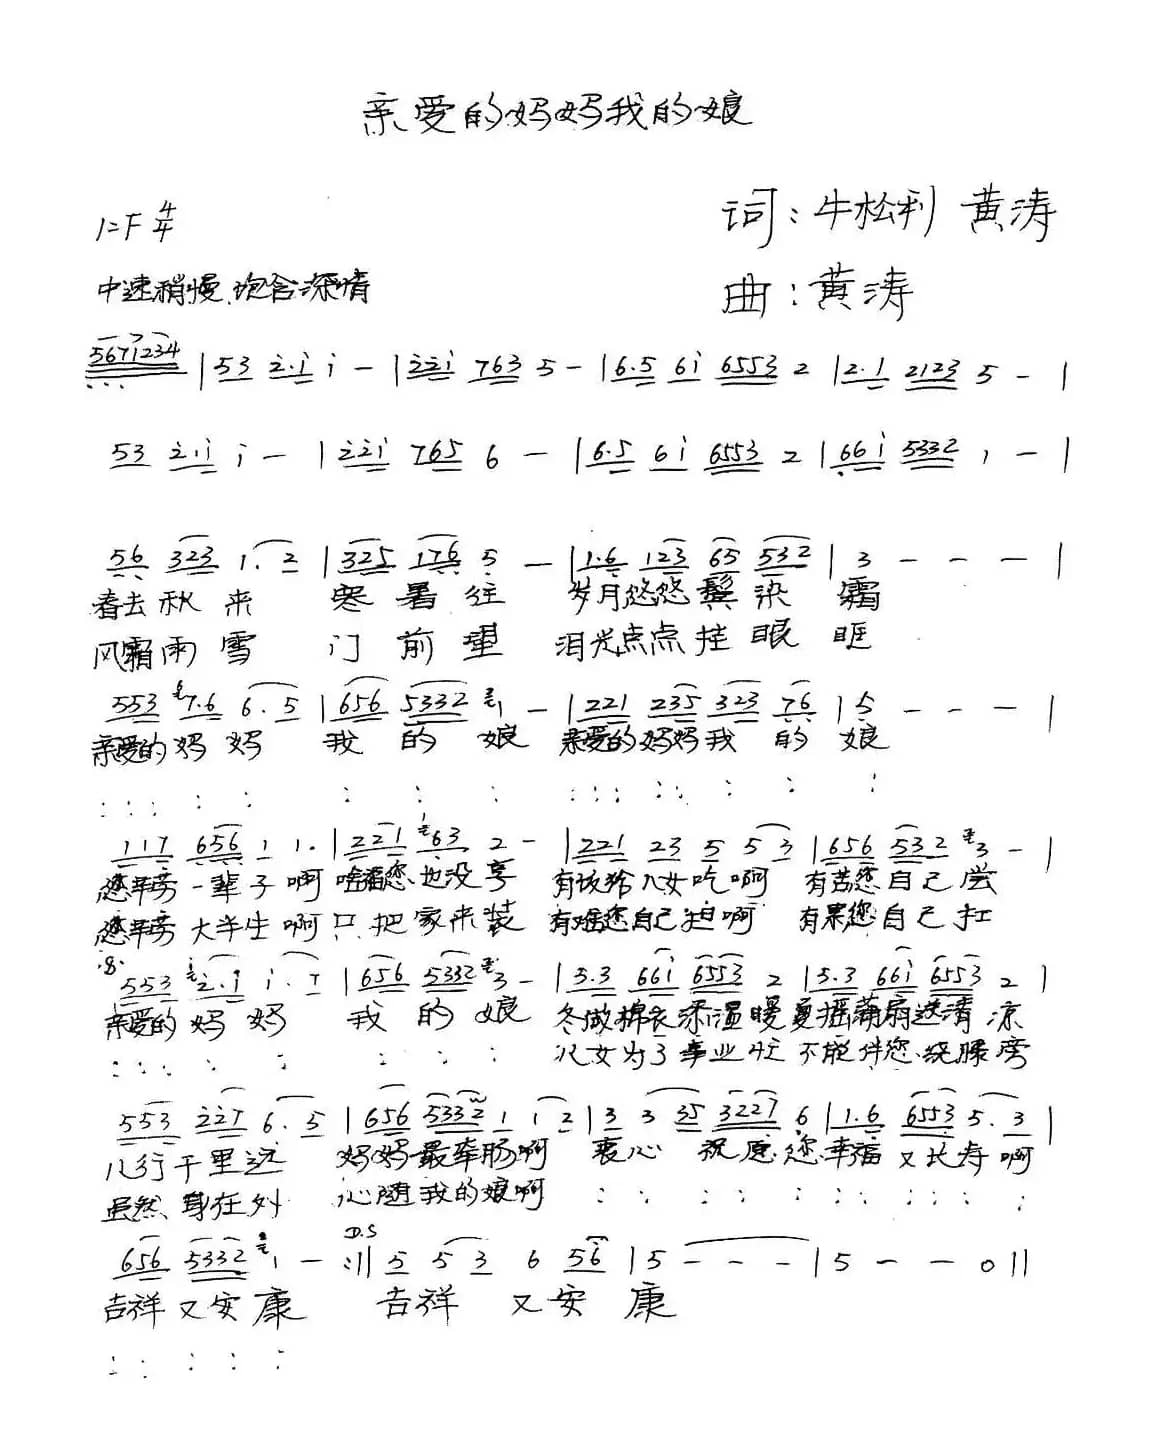 亲爱的妈妈我的娘
词：牛松利 黄涛
1=F 4/4
中速稍慢、饱含深情
曲：黄涛
5671234 | 53 2.1 1 - | 221 763 5 - | 6.5 61 6553 2 | 2.1 2123 5 - |
53 2.1 1 - | 221 765 6 - | 6.5 61 6553 2 | 661 5332 1 - |
56 323 1.2 | 325 176 5 - | 1.6 123 65 532 | 3 - - - |
春去秋来 寒暑往 岁月悠悠鬓染霜
风霜雨雪 门前望 泪光点点挂眼眶
553 7.6 6.5 | 656 5332 1 - | 221 235 323 76 | 5 - - - |
亲爱的妈妈 我的娘 亲爱的妈妈我的娘
: : : : : : : : : : : : : : : :
117 656 1 1. | 221 63 2 - | 221 23 5 53 | 656 532 3 - |
您辛劳一辈子啊 啥福您也没享 有饭给儿女吃啊 有苦您自己尝
您辛劳大半生啊 只把家来装 有难您自己担啊 有累您自己扛
553 2.1 1.7 | 656 5332 3 - | 5.3 661 6553 2 | 5.3 661 6553 2 |
亲爱的妈妈 我的娘 冬做棉衣添温暖 夏摇蒲扇送清凉
: : : : : : : : 儿女为了事业忙 不能伴您绕膝旁
553 227 6.5 | 656 5332 1 12 | 3 3 35 3227 6 | 1.6 6553 5.3 |
儿行千里远 妈妈最牵肠啊 衷心祝愿您 幸福又长寿啊
虽然身在外 心随我的娘啊 : : : : : : : : : : :
656 5332 1 - :|| D.S 5 53 6 56 | 5 - - - | 5 - - 0 ||
吉祥又安康 吉祥又安康
: : : : :